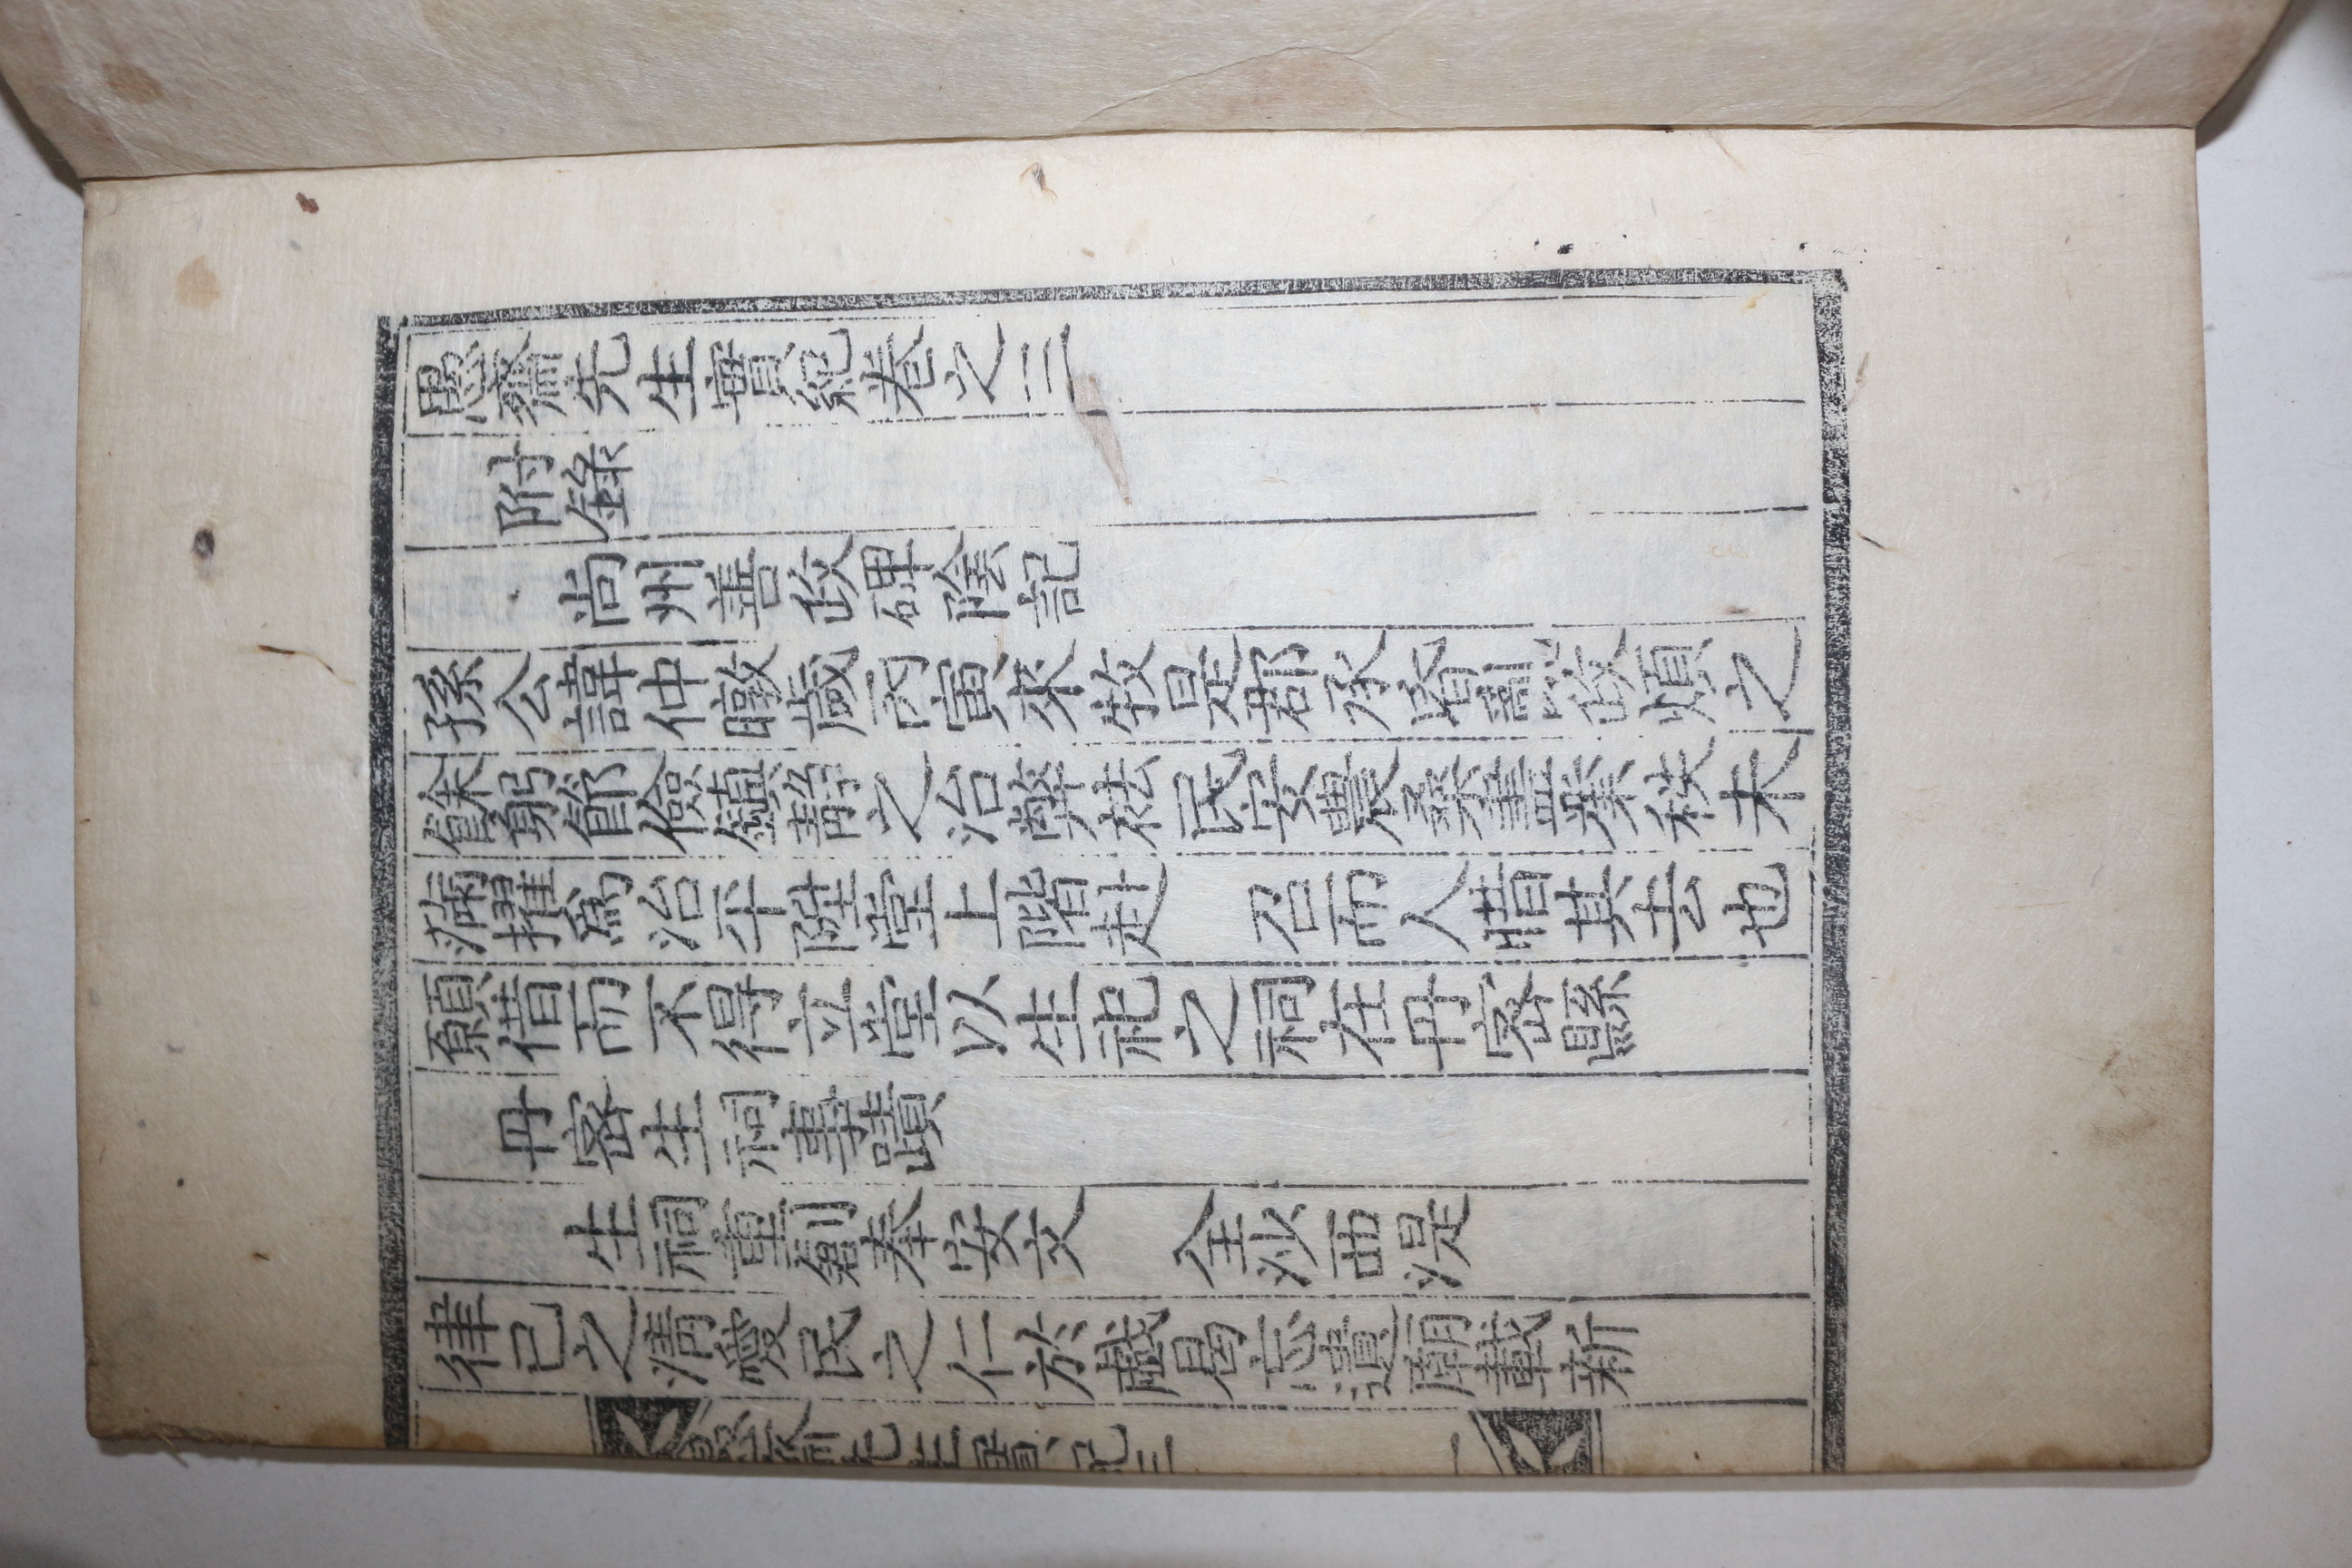 愚齋先生實紀卷之三
附錄
尚州善政碑陰記
孫公諱仲暾歲丙寅來牧是郡承昏亂政煩之
餘躬節儉鎭靜之治弊袪民安農桑盡業秩未
滿擢爲治平陞堂上階赴 召而人惜其去也
願借而不得立堂以生祀之祠在丹密縣
丹密生祠事蹟
生祠重創奉安文 全沙西湜
律己之淸愛民之仁於戱曷忘遺廟載新
愚齋先生實紀三 一